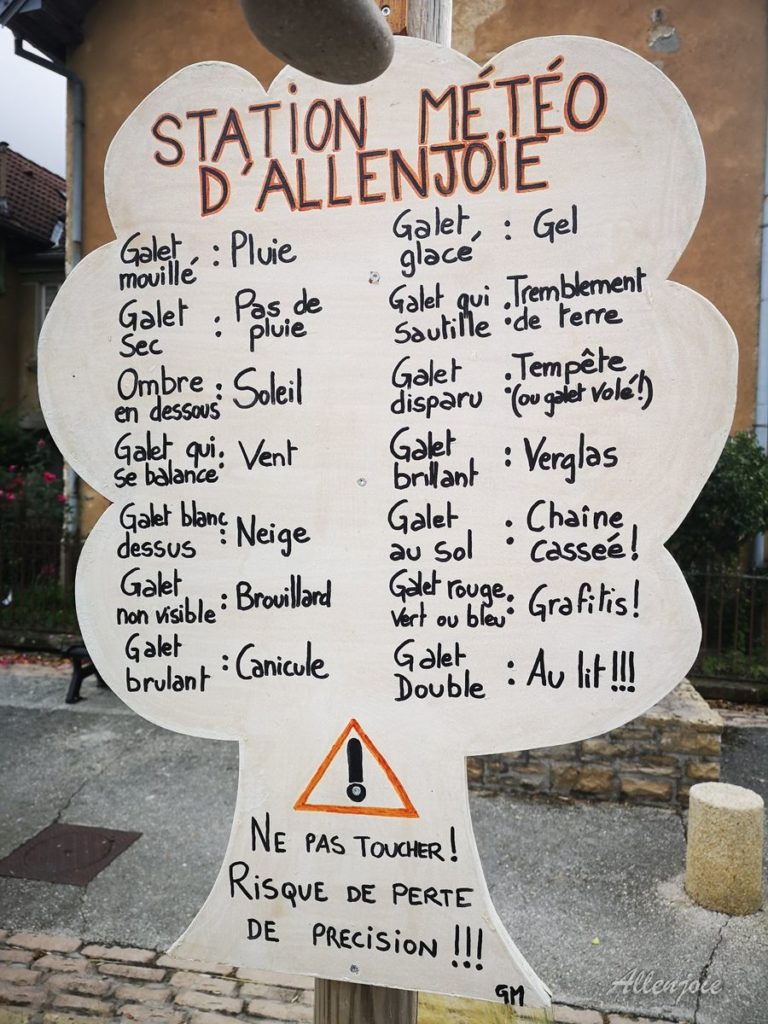 STATION MÉTÉO
D'ALLENJOIE
Galet mouillé : Pluie
Galet Sec : Pas de pluie
Ombre en dessous : Soleil
Galet qui se balance : Vent
Galet blanc dessus : Neige
Galet non visible : Brouillard
Galet brulant : Canicule
Galet glacé : Gel
Galet qui sautille : Tremblement de terre
Galet disparu : Tempête (ou galet volé!)
Galet brillant : Verglas
Galet au sol : Chaîne casseé!
Galet rouge, vert ou bleu : Grafitis!
Galet Double : Au lit!!!
NE PAS TOUCHER!
RISQUE DE PERTE
DE PRECISION!!!
GM
Allenjoie